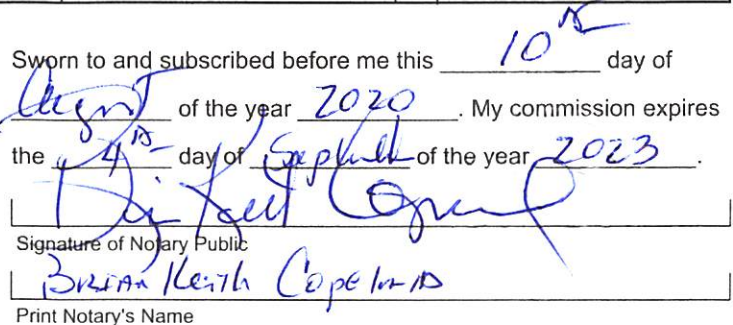 Sworn to and subscribed before me this 10th day of
August of the year 2020. My commission expires
the 4th day of September of the year 2023.
Signature of Notary Public
Brian Keith Copeland
Print Notary's Name